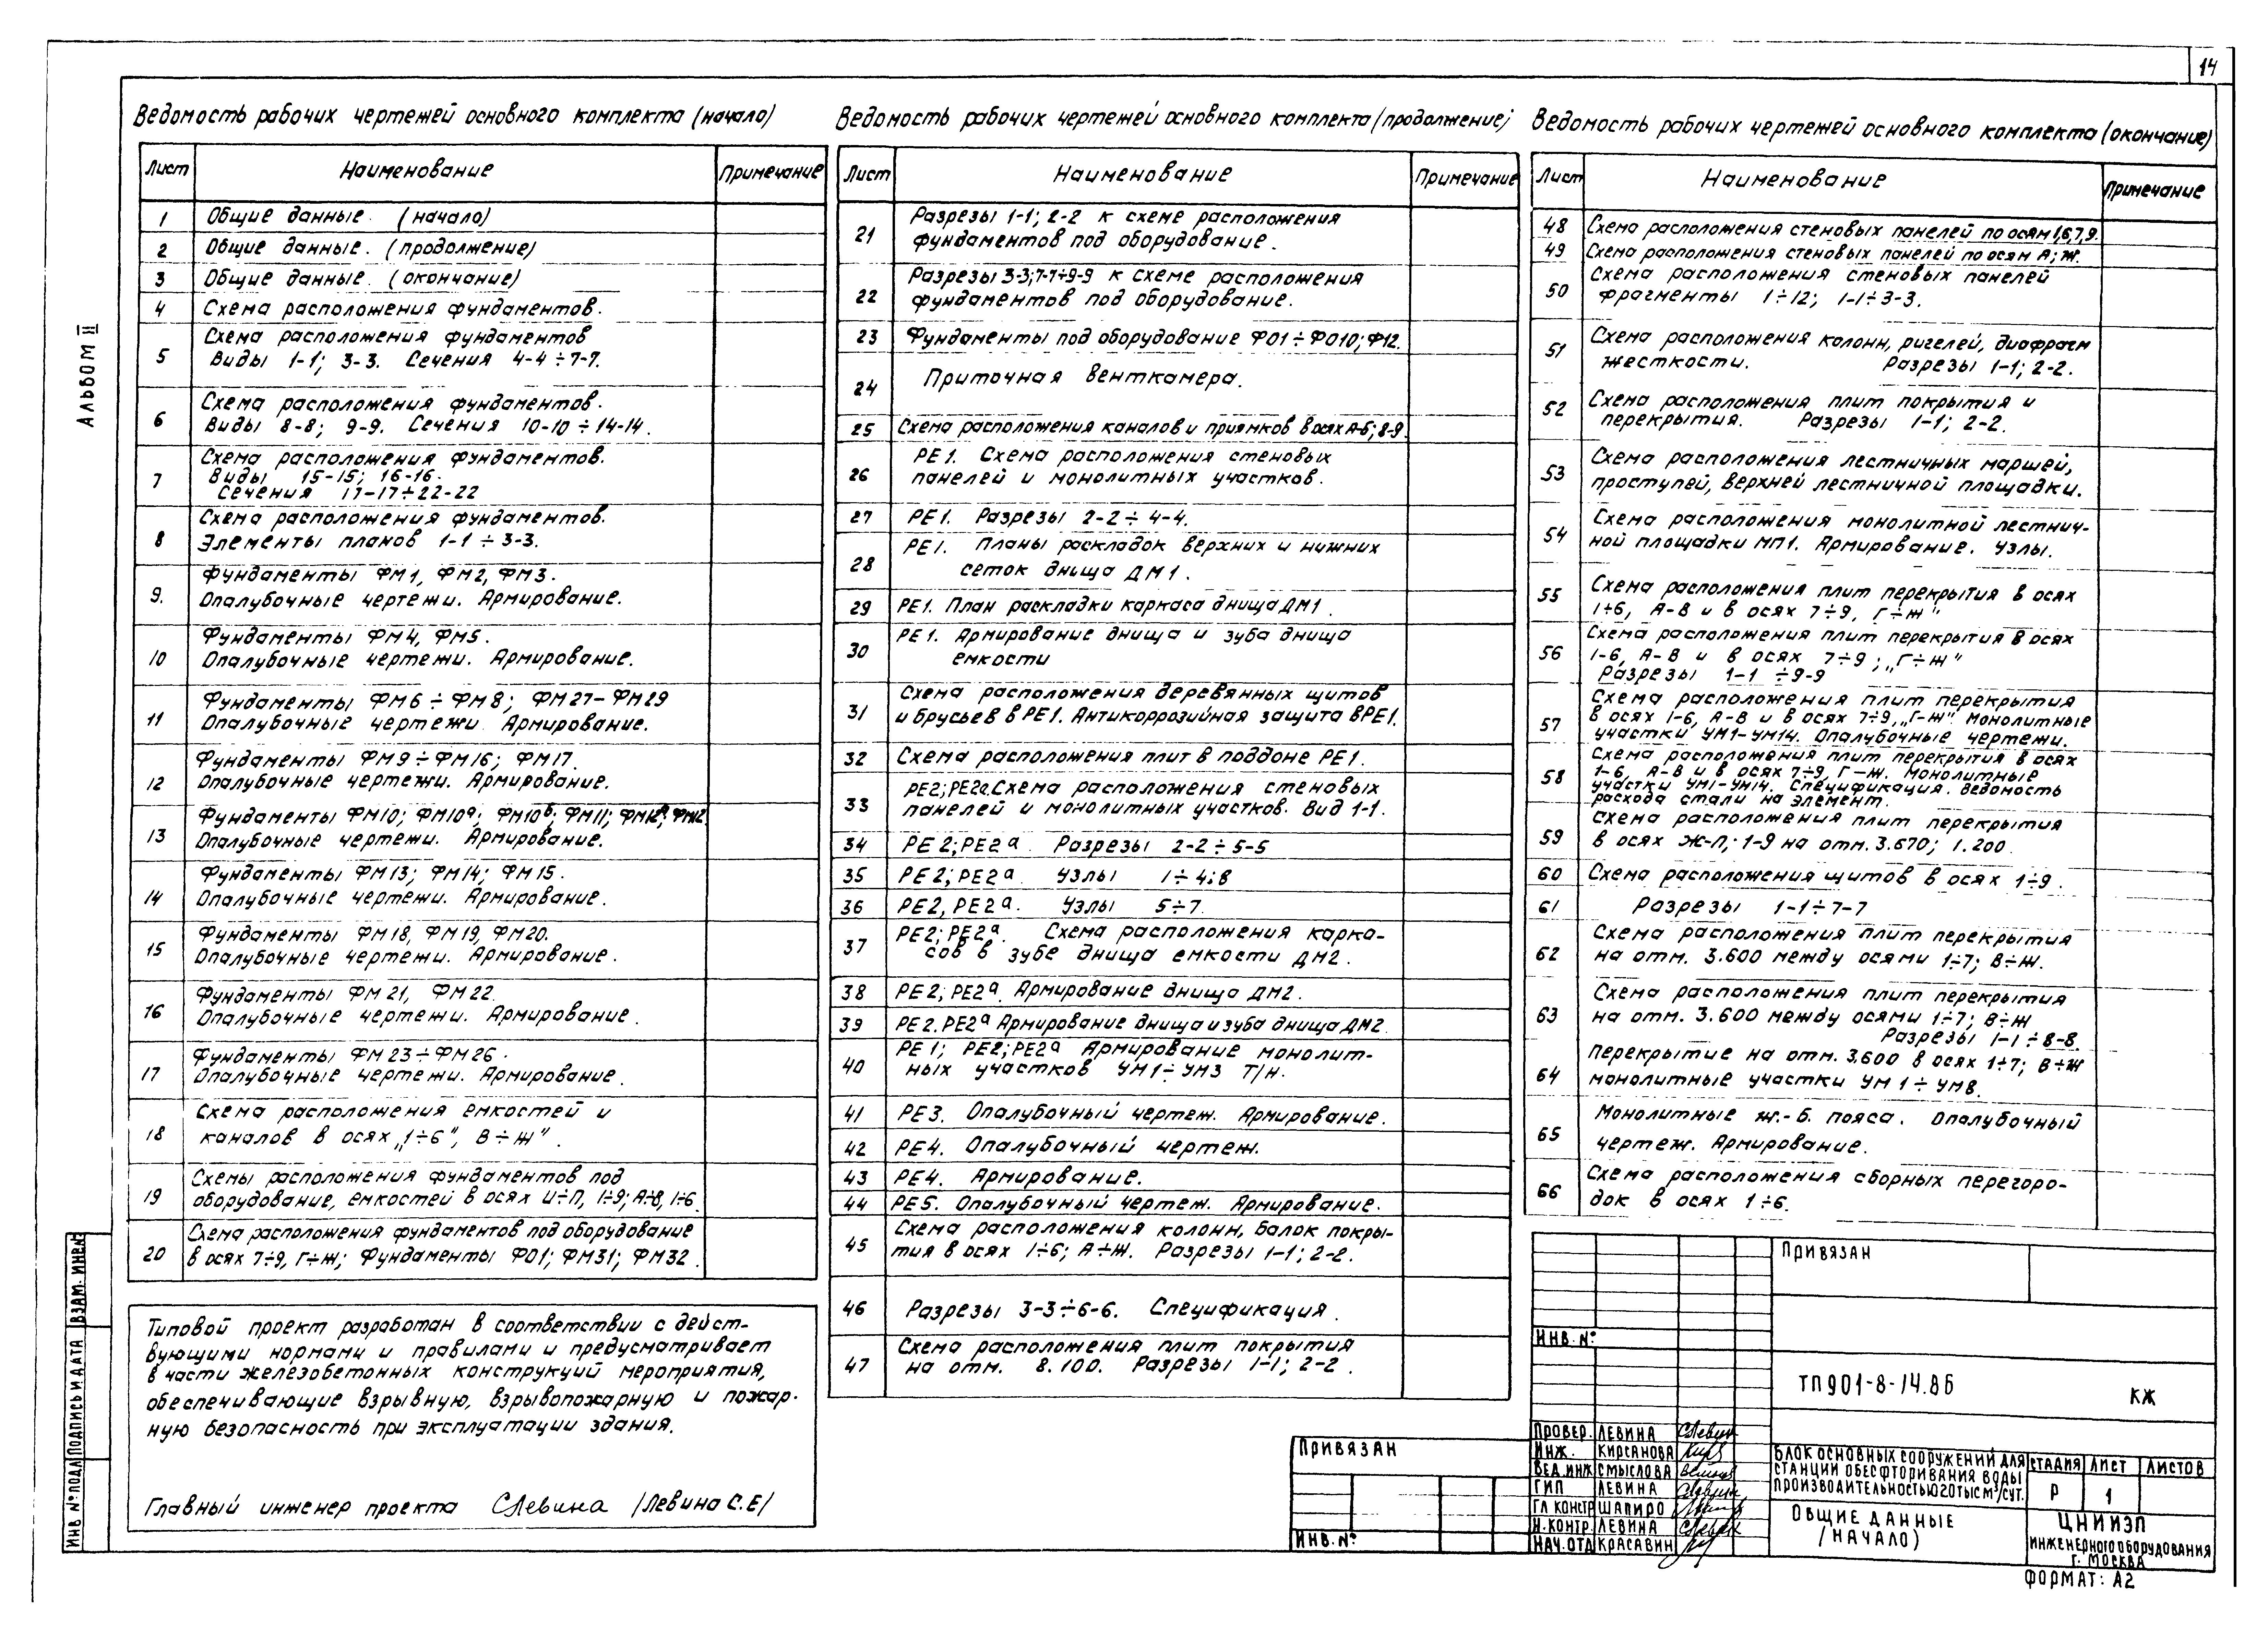 14
АЛЬБОМ II
Ведомость рабочих чертежей основного комплекта (начало)
Лист Наименование Примечание
1 Общие данные. (начало)
2 Общие данные. (продолжение)
3 Общие данные. (окончание)
4 Схема расположения фундаментов.
Схема расположения фундаментов
5 Виды 1-1; 3-3. Сечения 4-4÷7-7.
Схема расположения фундаментов.
6 Виды 8-8; 9-9. Сечения 10-10÷14-14.
Схема расположения фундаментов.
7 Виды 15-15; 16-16.
Сечения 17-17÷22-22
Схема расположения фундаментов.
8 Элементы планов 1-1÷3-3.
Фундаменты ФМ1, ФМ2, ФМ3.
9. Опалубочные чертежи. Армирование.
Фундаменты ФМ4, ФМ5.
10 Опалубочные чертежи. Армирование.
Фундаменты ФМ6÷ФМ8; ФМ27-ФМ29
11 Опалубочные чертежи Армирование.
Фундаменты ФМ9÷ФМ16; ФМ17.
12 Опалубочные чертежи. Армирование.
Фундаменты ФМ10; ФМ10а; ФМ10б; ФМ11; ФМ12а; ФМ12.
13 Опалубочные чертежи. Армирование.
Фундаменты ФМ13; ФМ14; ФМ15.
14 Опалубочные чертежи. Армирование.
Фундаменты ФМ18, ФМ19, ФМ20.
15 Опалубочные чертежи. Армирование.
Фундаменты ФМ21, ФМ22.
16 Опалубочные чертежи. Армирование.
Фундаменты ФМ23÷ФМ26.
17 Опалубочные чертежи. Армирование.
Схема расположения емкостей и
18 каналов в осях „1÷6", В÷Ж".
Схемы расположения фундаментов под
19 оборудование, емкостей в осях И÷П, 1÷9; А÷В, 1÷6.
Схема расположения фундаментов под оборудование
20 в осях 7÷9, Г÷Ж; Фундаменты Ф01; ФМ31; ФМ32.
Типовой проект разработан в соответствии с дейст-
вующими нормами и правилами и предусматривает
в части железобетонных конструкций мероприятия,
обеспечивающие взрывную, взрывопожарную и пожар-
ную безопасность при эксплуатации здания.
Главный инженер проекта СЛевина /Левина С.Е/
Ведомость рабочих чертежей основного комплекта (продолжение)
Лист Наименование Примечание
Разрезы 1-1; 2-2 к схеме расположения
21 фундаментов под оборудование.
Разрезы 3-3; 7-7÷9-9 к схеме расположения
22 фундаментов под оборудование.
23 Фундаменты под оборудование Ф01÷Ф010; Ф12.
24 Приточная венткамера.
25 Схема расположения каналов и приямков в осях А-Б; 8-9.
РЕ1. Схема расположения стеновых
26 панелей и монолитных участков.
27 РЕ1. Разрезы 2-2÷4-4.
РЕ1. Планы раскладок верхних и нижних
28 сеток днища ДМ1.
29 РЕ1. План раскладки каркаса днища ДМ1.
РЕ1. Армирование днища и зуба днища
30 емкости
Схема расположения деревянных щитов
31 и брусьев в РЕ1. Антикоррозийная защита в РЕ1.
32 Схема расположения плит в поддоне РЕ1.
РЕ2; РЕ2а. Схема расположения стеновых
33 панелей и монолитных участков. Вид 1-1.
34 РЕ2; РЕ2а Разрезы 2-2÷5-5
35 РЕ2; РЕ2а Узлы 1÷4; 8
36 РЕ2, РЕ2а. Узлы 5÷7.
РЕ2; РЕ2а. Схема расположения карка-
37 сов в зубе днища емкости ДМ2.
38 РЕ2; РЕ2а. Армирование днища ДМ2.
39 РЕ2. РЕ2а Армирование днища и зуба днища ДМ2.
РЕ1; РЕ2; РЕ2а Армирование монолит-
40 ных участков УМ1÷УМ3 Т/Н.
41 РЕ3. Опалубочный чертеж. Армирование.
42 РЕ4. Опалубочный чертеж.
43 РЕ4. Армирование.
44 РЕ5. Опалубочный чертеж. Армирование.
Схема расположения колонн, балок покры-
45 тия в осях 1÷6; А÷Ж. Разрезы 1-1; 2-2.
46 Разрезы 3-3÷6-6. Спецификация.
Схема расположения плит покрытия
47 на отм. 8.100. Разрезы 1-1; 2-2.
Ведомость рабочих чертежей основного комплекта (окончание)
Лист Наименование Примечание
48 Схема расположения стеновых панелей по осям 1,6,7,9.
49 Схема расположения стеновых панелей по осям А; Ж.
Схема расположения стеновых панелей
50 Фрагменты 1÷12; 1-1÷3-3.
Схема расположения колонн, ригелей, диафрагм
51 жесткости. Разрезы 1-1; 2-2.
Схема расположения плит покрытия и
52 перекрытия. Разрезы 1-1; 2-2.
Схема расположения лестничных маршей,
53 проступей, верхней лестничной площадки.
Схема расположения монолитной лестнич-
54 ной площадки МП1. Армирование. Узлы.
Схема расположения плит перекрытия в осях
55 1÷6, А-В и в осях 7÷9, Г÷Ж"
Схема расположения плит перекрытия в осях
56 1-6, А-В и в осях 7÷9; „Г÷Ж"
Разрезы 1-1÷9-9
Схема расположения плит перекрытия
57 в осях 1-6, А-В и в осях 7÷9, „Г-Ж". Монолитные
участки УМ1-УМ14. Опалубочные чертежи.
Схема расположения плит перекрытия в осях
58 1-6, А-В и в осях 7÷9, Г-Ж. Монолитные
участки УМ1-УМ14. Спецификация. Ведомость
расхода стали на элемент.
Схема расположения плит перекрытия
59 в осях Ж-П; 1-9 на отм. 3.670; 1.200.
60 Схема расположения щитов в осях 1÷9.
61 Разрезы 1-1÷7-7
Схема расположения плит перекрытия
62 на отм. 3.600 между осями 1÷7; В÷Ж.
Схема расположения плит перекрытия
63 на отм. 3.600 между осями 1÷7; В÷Ж
Разрезы 1-1÷8-8.
Перекрытие на отм. 3.600 в осях 1÷7; В÷Ж
64 монолитные участки УМ1÷УМ8.
Монолитные ж.-б. пояса. Опалубочный
65 чертеж. Армирование.
Схема расположения сборных перегоро-
66 док в осях 1÷6.
ПРИВЯЗАН
ИНВ. №
ТП901-8-14.86 КЖ
ПРОВЕР. ЛЕВИНА СЛевин
ИНЖ. КИРСАНОВА
ВЕД.ИНЖ СМЫСЛОВА
ГИП ЛЕВИНА
ГЛ КОНСТР ШАПИРО
Н.КОНТР. ЛЕВИНА
НАЧ.ОТД КРАСАВИН
БЛОК ОСНОВНЫХ СООРУЖЕНИЙ ДЛЯ
СТАНЦИИ ОБЕСФТОРИВАНИЯ ВОДЫ
ПРОИЗВОДИТЕЛЬНОСТЬЮ 20 ТЫС М³/СУТ.
СТАДИЯ ЛИСТ ЛИСТОВ
Р 1
ОБЩИЕ ДАННЫЕ
/НАЧАЛО)
ЦНИИЭП
ИНЖЕНЕРНОГО ОБОРУДОВАНИЯ
Г. МОСКВА
ФОРМАТ: А2
ПРИВЯЗАН
ИНВ. №
ИНВ № ПОДЛ ПОДПИСЬ И ДАТА ВЗАМ. ИНВ №